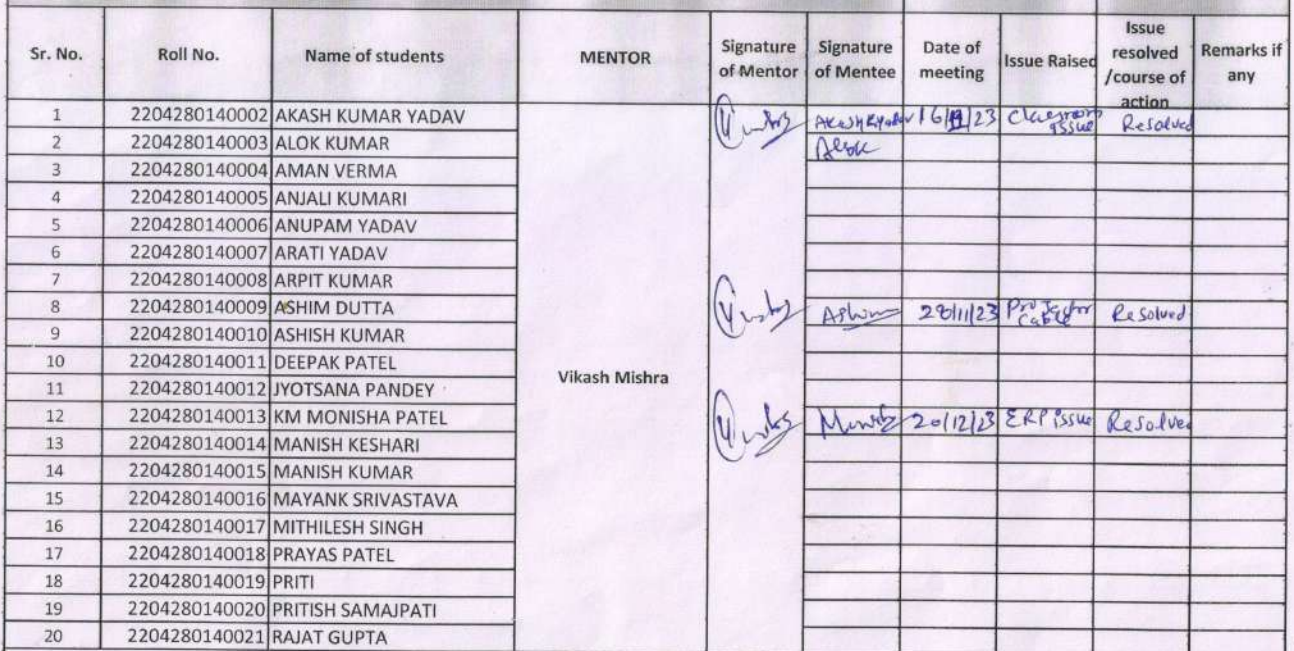 Sr. No. Roll No. Name of students MENTOR Signature of Mentor Signature of Mentee Date of meeting Issue Raised Issue resolved /course of action Remarks if any
1 2204280140002 AKASH KUMAR YADAV 16/11/23 Classroom issue Resolved
2 2204280140003 ALOK KUMAR Alok
3 2204280140004 AMAN VERMA
4 2204280140005 ANJALI KUMARI
5 2204280140006 ANUPAM YADAV
6 2204280140007 ARATI YADAV
7 2204280140008 ARPIT KUMAR
8 2204280140009 ASHIM DUTTA Ashim 28/11/23 Projector Cable Resolved
9 2204280140010 ASHISH KUMAR
10 2204280140011 DEEPAK PATEL
Vikash Mishra
11 2204280140012 JYOTSANA PANDEY
12 2204280140013 KM MONISHA PATEL 20/12/23 ERP issue Resolved
13 2204280140014 MANISH KESHARI
14 2204280140015 MANISH KUMAR
15 2204280140016 MAYANK SRIVASTAVA
16 2204280140017 MITHILESH SINGH
17 2204280140018 PRAYAS PATEL
18 2204280140019 PRITI
19 2204280140020 PRITISH SAMAJPATI
20 2204280140021 RAJAT GUPTA